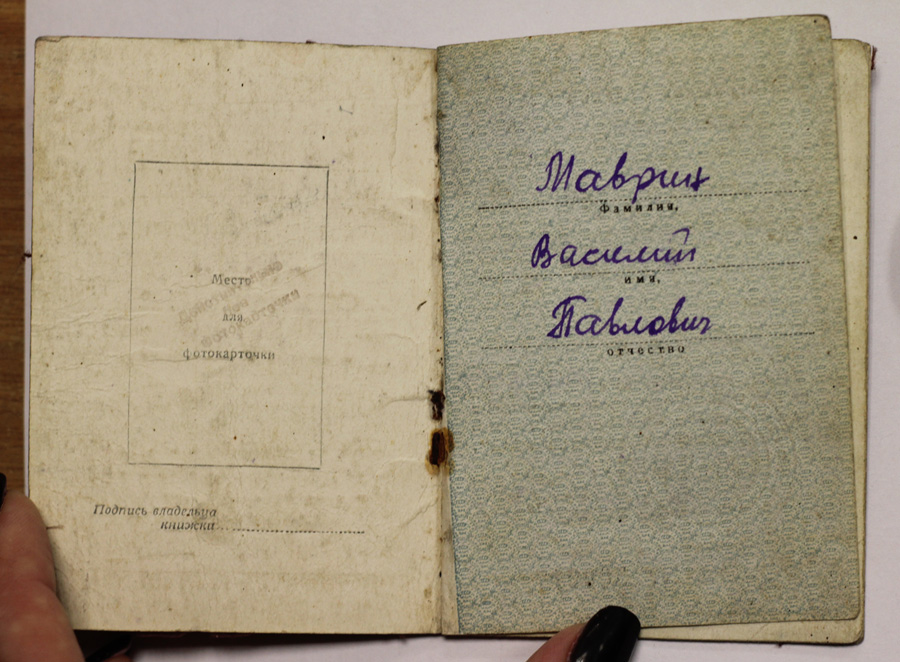 Место
для
фотокарточки
Действительно
без
фотокарточки
Подпись владельца
книжки
Маврин
Фамилия,
Василий
имя,
Павлович
отчество